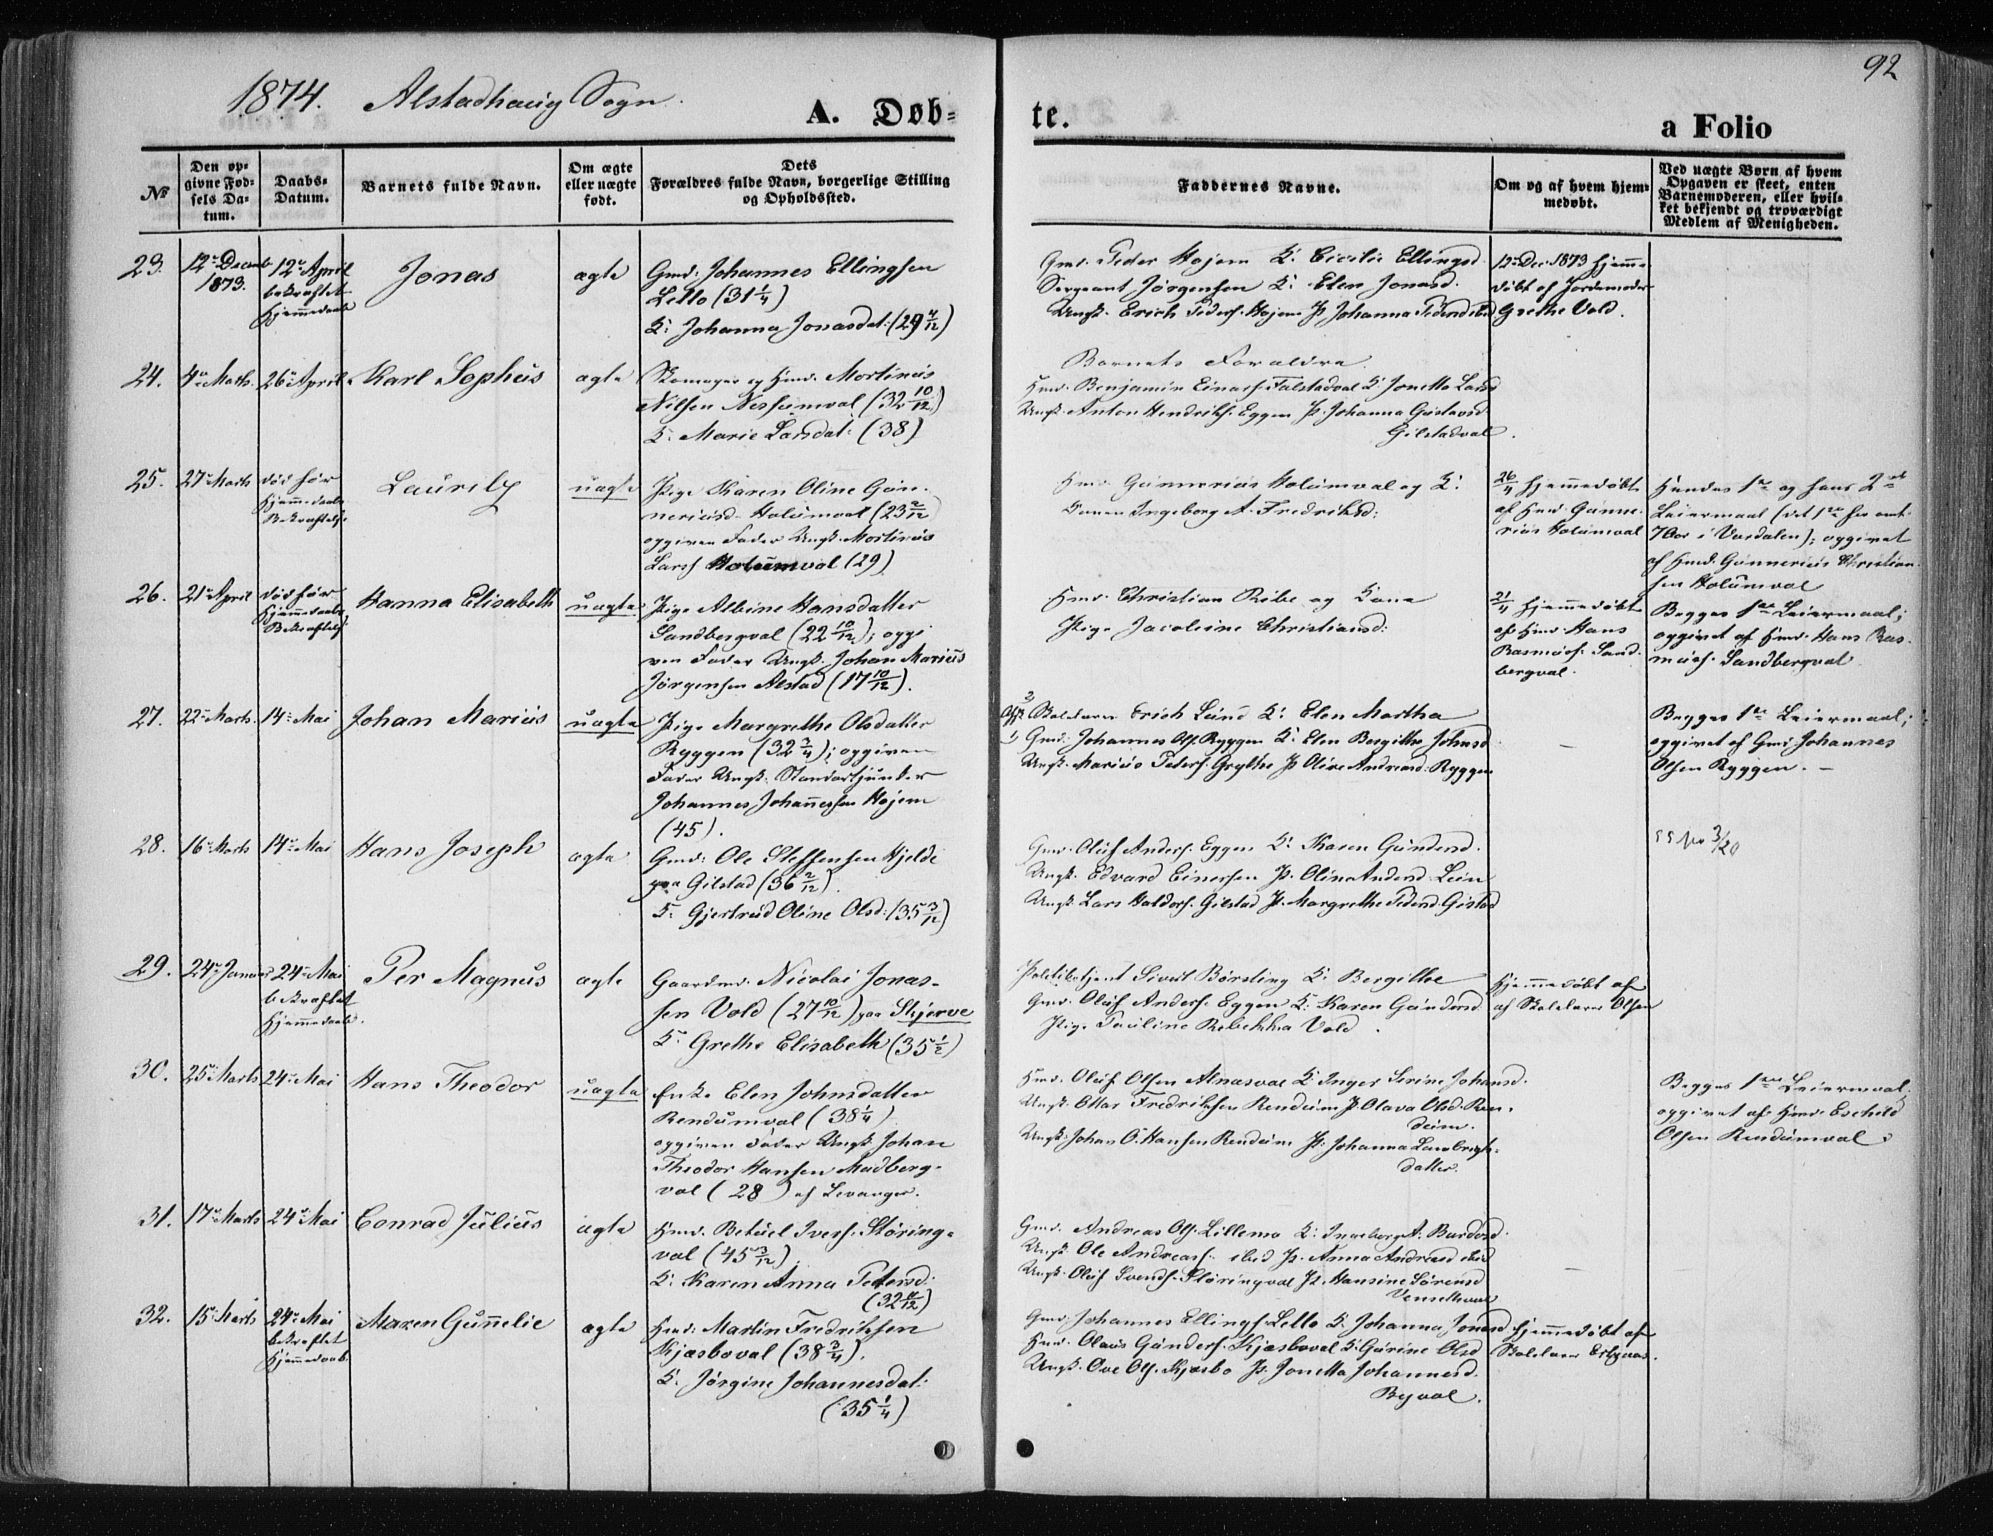 92
1874. Alstadhaug Sogn.
A. Døb-
te.
a Folio
No
Den op-
givne Fød-
sels Da-
tum.
Daabs-
Datum.
Barnets fulde Navn.
Om ægte
eller uægte
født.
Dets
Forældres fulde Navn, borgerlige Stilling
og Opholdssted.
Faddernes Navne.
Om og af hvem hjem-
medøbt.
Ved uægte Børn af hvem
Opgaven er skeet, enten
Barnemoderen, eller hvil-
ket bekjendt og troværdigt
Medlem af Menigheden.
23.
12te Decemb
1873.
12te April
bekræftet
Hjemmedaab
Jonas
ægte
Gmd. Johannes Ellingsen
Lello (31 1/4)
K. Johanna Jonasdat: (29 4/12)
Gmd. Peder Hojem K. Cecilie Ellingsd.
Sergeant Jørgensen K. Elen Jonasd.
Ungk. Erich Peders. Hojem P. Johanna Pedersd ibid
12te Dec. 1873 hjemme-
døbt af Jordemoder
Grethe Vold.
24.
4de Marts
26de April
Karl Sophus
ægte
Skomager og Hmd. Mortinus
Nilsen Nessumval (32 10/12)
K. Marie Larsdat: (38)
Barnets Forældre
Hmd. Benjamin Einars. Falstadval K. Jonetta Larsd
Ungk. Anton Hendriks. Eggen P. Johanna Gustavsd.
Gilstadval.
25.
27de Marts
død før
Hjemmedaabs
Bekræftelse
Laurily
uægte
Pige Karen Oline Gun-
neriusd. Holumval (23 2/12)
opgiven Fader Ungk. Mortinus
Larss Holumval (29)
Hmd. Gunnerius Holumval og K.
Konen Ingeborg A. Fredriksd:
26/4 hjemmedøbt
af Hmd. Gunne-
rius Holumval
Hendes 1ste og hans 2det
Leiermaal (det 1ste for omt.
7 Aar i Værdalen); opgivet
af Hmd. Gunnerius Christian-
sen Holumval
26.
21de April
død før
Hjemmedaabs
Bekræftelse
Hanna Elisabeth
uægte
Pige Albine Hansdatter
Sandbergval (22 10/12); opgi-
ven Fader Ungk. Johan Marius
Jørgensen Alstad (17 10/12).
Hmd. Christian Ribe og Kone
Pige Jacobine Christiansd:
21/4 hjemmedøbt
af Hmd. Hans
Rasmuss. Sand-
bergval.
Begges 1ste Leiermaal;
opgivet af Hmd. Hans Ras-
muss. Sandbergval
27.
22de Marts.
14de Mai
Johan Marius
uægte
Pige Margrethe Olsdatter
Ryggen (32 3/4); opgiven
Fader Ungk. Standartjunker
Johannes Johannessen Hojem
(45).
Skolelærer Erich Lund K. Elen Martha
Gmd. Johannes Ols. Ryggen K. Elen Bergitha Johnsd
Ungk. Marius Peders. Grythe P. Oline Andreasd. Ryggen
—
Begges 1ste Leiermaal;
opgivet af Gmd. Johannes
Olsen Ryggen. —
28.
16de Marts
14de Mai
Hans Joseph
ægte
Gmd: Ole Steffensen Hjelde
paa Gilstad (36 2/12).
K. Gjertrud Oline Olsd: (35 3/12)
Gmd. Oluf Anders. Eggen K. Karen Gundersd.
Ungk. Edvard Einersen P. Olina Andersd. Lein
Ungk. Lars Haldors. Gilstad P. Margrethe Pedersd. Gilstad
3/20
29.
24de Januar
24de Mai
bekræftet
Hjemmedaab.
Per Magnus
ægte
Gaardmd. Nicolai Jonas-
sen Vold (27 10/12) paa Skjerve
K. Grethe Elisabeth (35 1/2)
Politibetjent Sivert Børsting K. Bergitha
Gmd. Oluf Anders. Eggen K. Karen Gundersd
Pige Pauline Rebekka Vold.
Hjemmedøbt af
af Skolelærer Olsen
30.
25de Marts
24de Mai
Hans Theodor
uægte
Enke Elen Johnsdatter
Rendumval (38 1/4)
opgiven Fader Ungk. Johan
Theodor Hansen Madberg-
val (28) af Levanger.
Hmd. Oluf Olsen Alnæsval K. Inger Serine Johansd.
Ungk. Ottar Fredriksen Rendum P. Olava Olsd. Ren-
dum.
Ungk. Johan O. Hansen Rendum P. Johanna Lambrigts-
datter.
Begges 1ste Leiermaal,
opgivet af Hmd. Eschild
Olsen Rendumval.
31.
17de Marts
24de Mai
Conrad Julius
ægte
Hmd. Betuel Ivers. Støring-
val (45 3/12)
K. Karen Anna Petersd:
(32 11/12)
Gmd. Andreas Ols. Lillemo K. Ingeborg A. Bardosd.
Ungk. Ole Andreass. ibid P. Anna Andreasd ibid
Ungk. Oluf Svends. Støringval P. Hansine Sørensd
32.
15de Marts
24de Mai
bekræftet
Hjemmedaab.
Maren Gunnelie
ægte
Hmd: Martin Fredriksen
Kjæsboval (38 3/4).
K. Jørgine Johannesdat:
(35 1/4)
Gmd. Johannes Ellings. Lello K. Johanna Jonasd
Hmd. Olaus Gunders. Kjæsboval K. Gurine Olsd
Ungk. Ove Ols. Kjæsbo P. Jonetta Johannesd.
Byval.
Hjemmedøbt af
Skolelærer